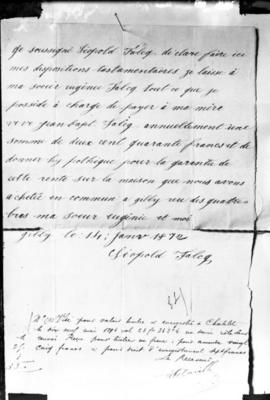 Je soussigné Léopold Falcq, déclare faire ici
mes dispositions testamentaires je laisse à
ma soeur eugénie Falcq tout ce que je
possède à charge de payer à ma mère
vve jean bapt. Falcq annuellement une
somme de deux cent quarante francs et de
donner hypothèque pour la garantie de
cette rente sur la maison que nous avons
achetée en commun a gilly rue des quatre
bras ma soeur eugénie et moi
gilly le 14 janvr 1872
Léopold Falcq
pour valoir timbre et enregistré à Châtelet
le dix neuf mai
Reçu pour timbre
cinq francs
Le Receveur